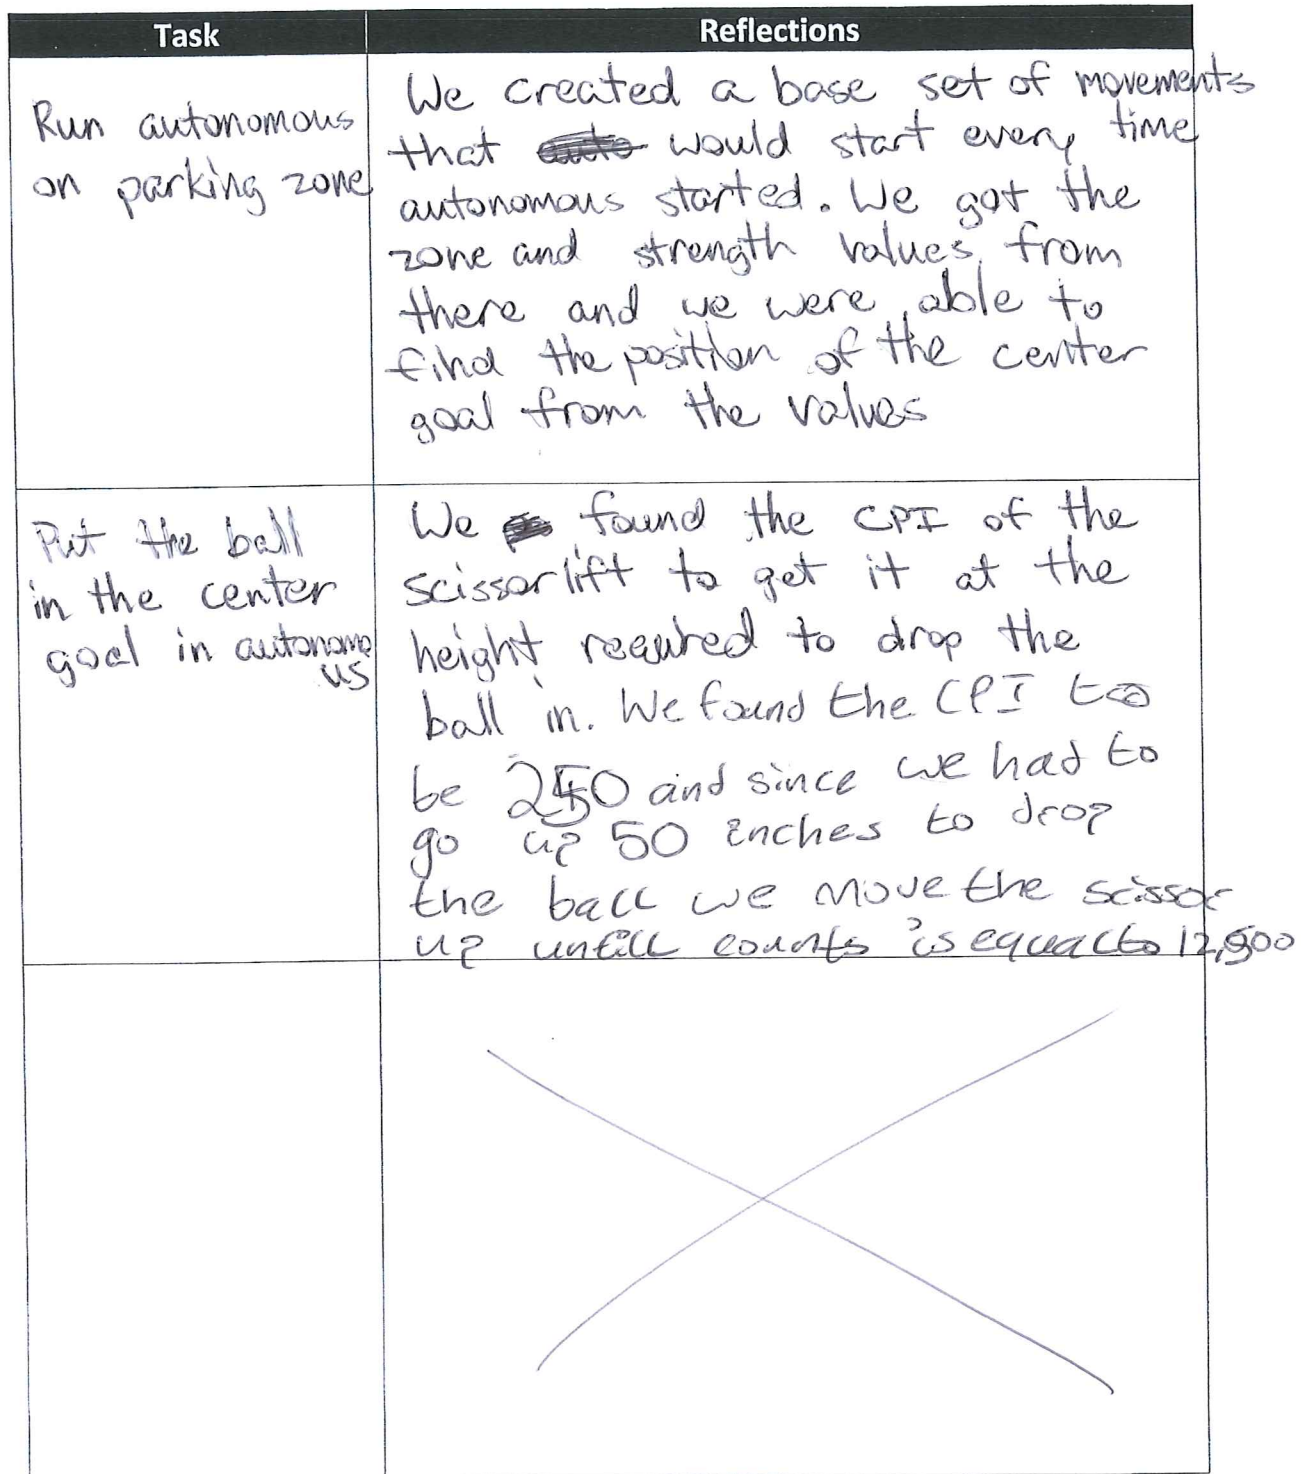 Task
Reflections
Run autonomous
on parking zone
We created a base set of movements
that would start every time
autonomous started. We got the
zone and strength values from
there and we were able to
find the position of the center
goal from the values
Put the ball
in the center
goal in autonomo
us
We found the CPI of the
scissorlift to get it at the
height required to drop the
ball in. We found the CPI to
be 250 and since we had to
go up 50 inches to drop
the ball we move the scissor
up untill counts is equal to 12,500